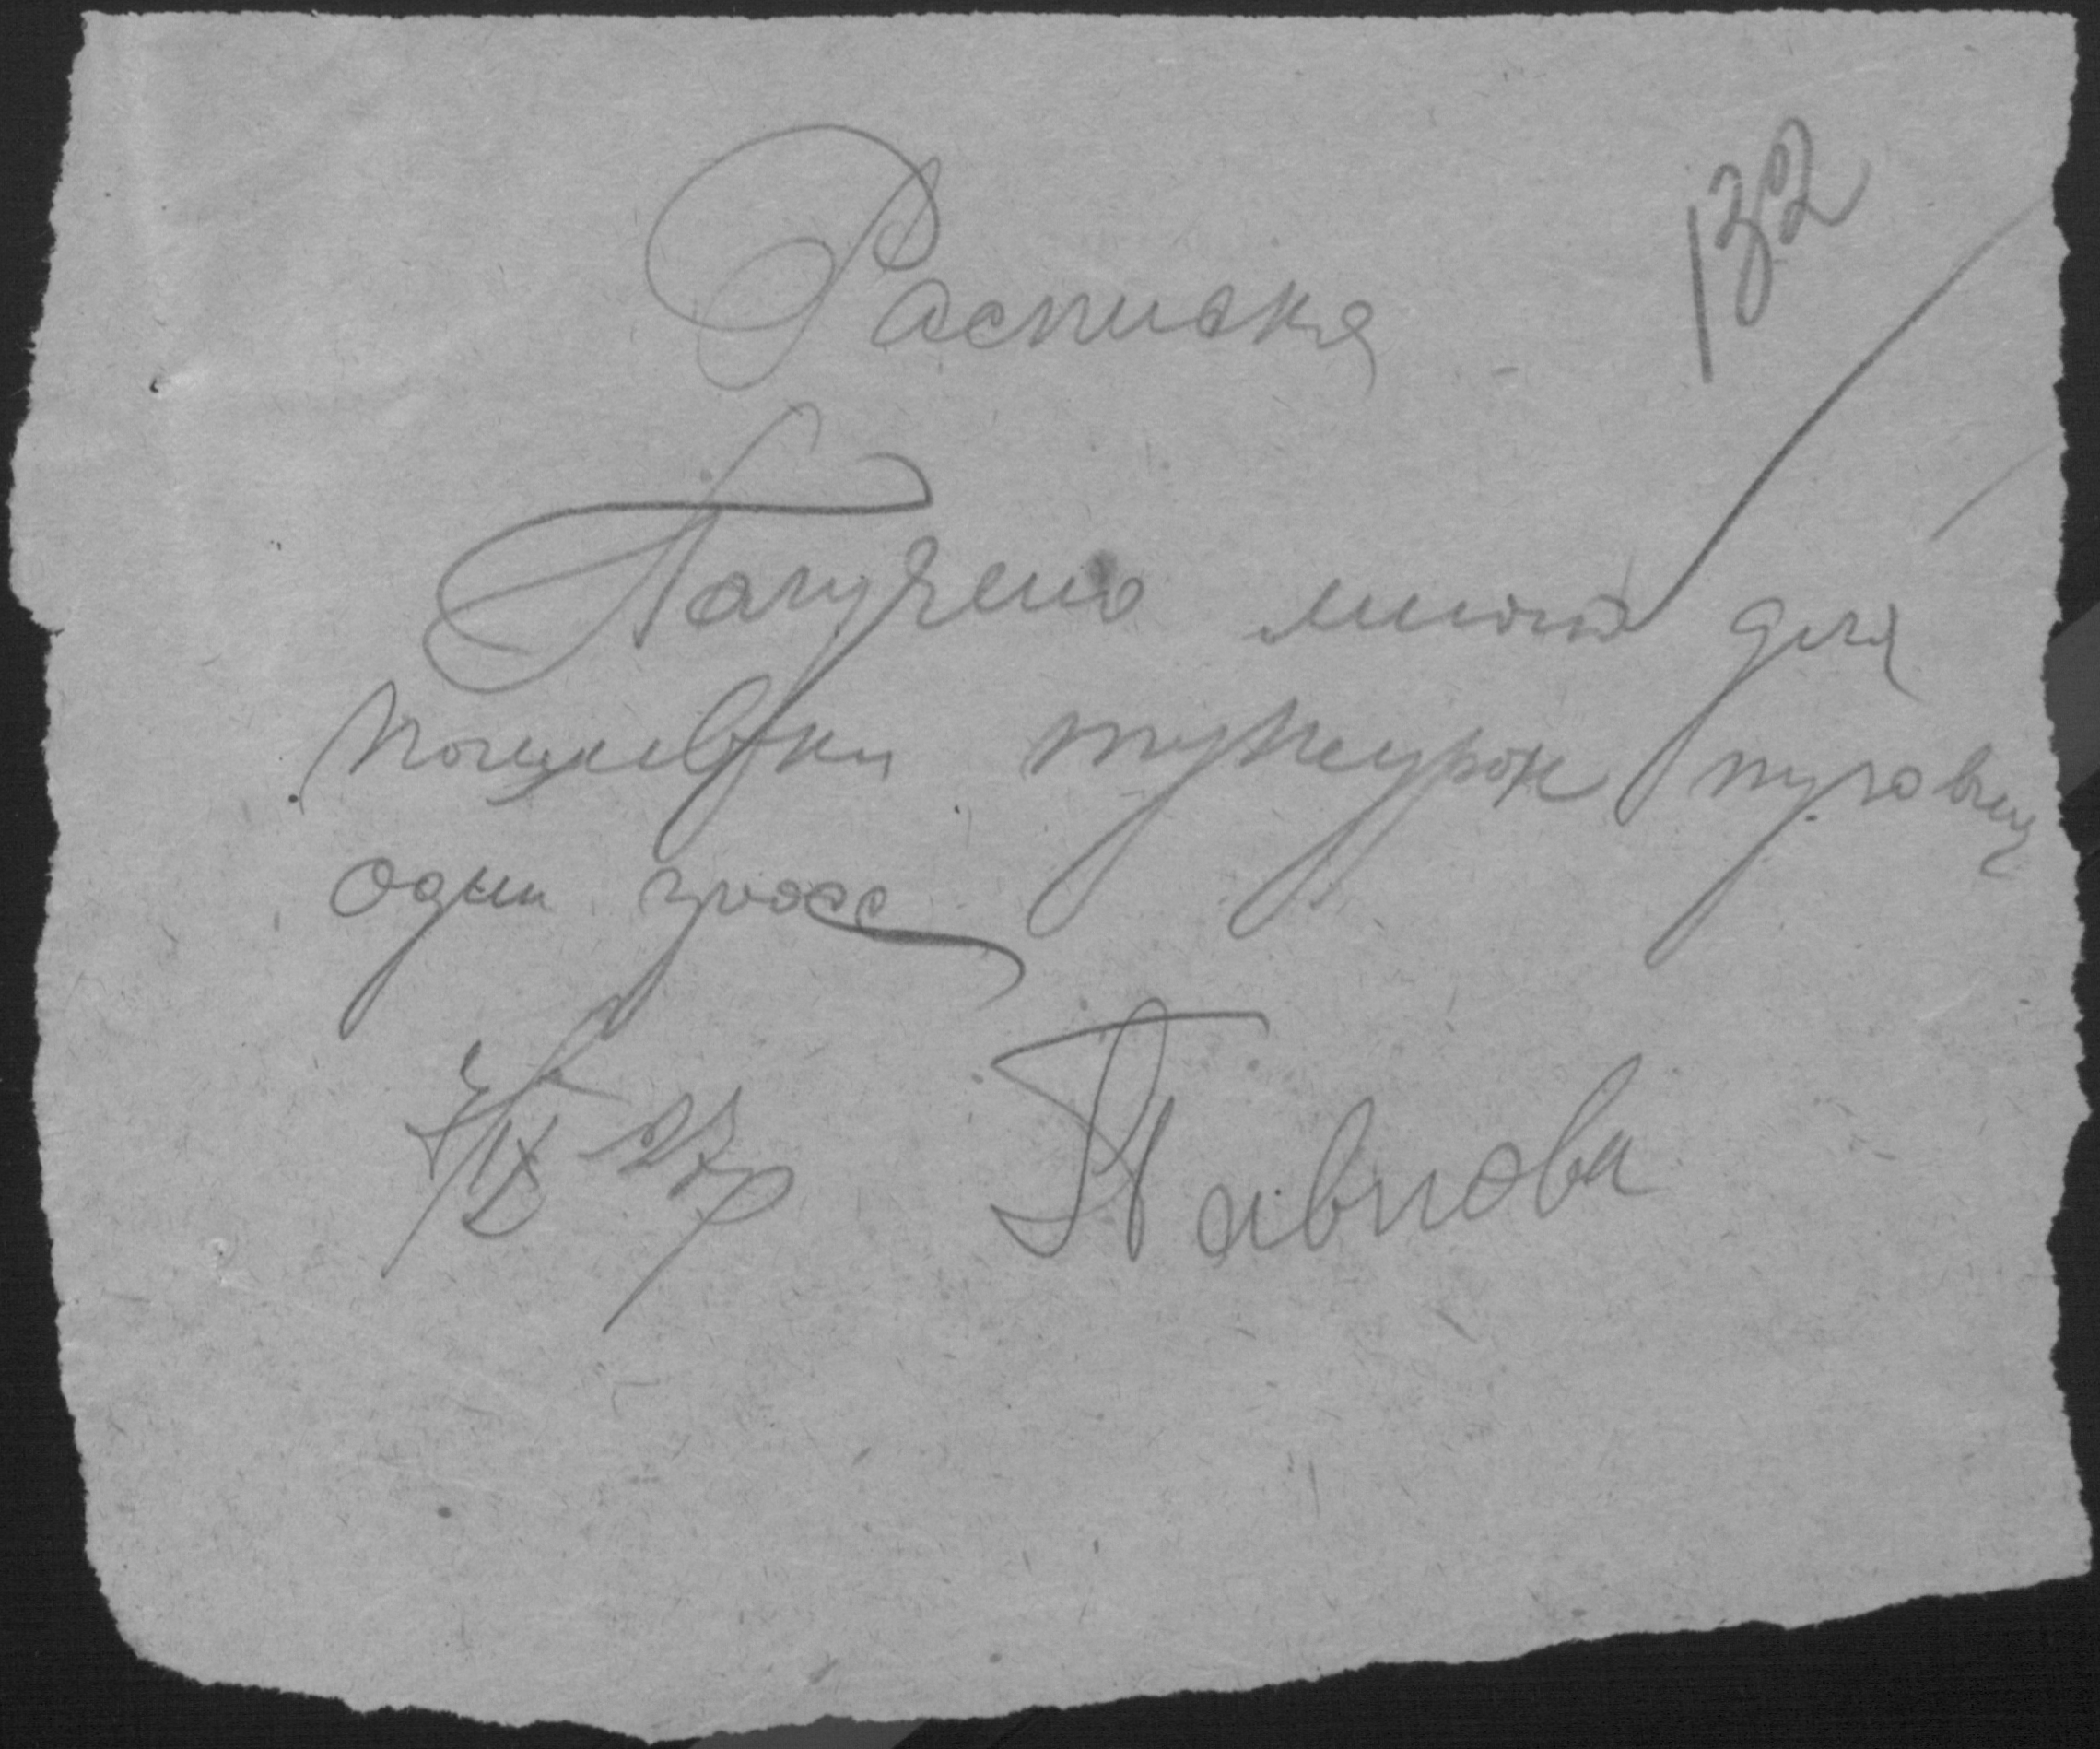 132
Расписка
Получено мною для
пошивки тужурок пуговиц
один гросс
7/IX 27 г
Павлова